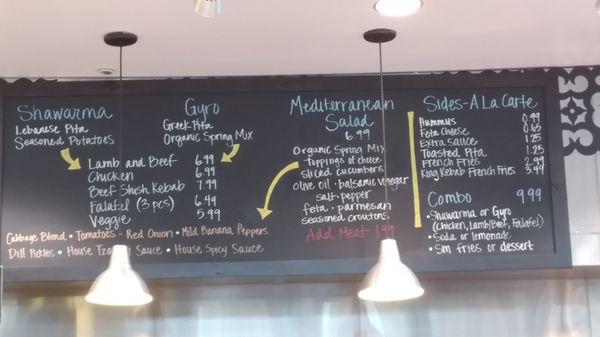 Shawarma
Lebanese Pita
Seasoned Potatoes
Gyro
Greek Pita
Organic Spring Mix
Lamb and Beef 6.99
Chicken 6.99
Beef Shish Kebab 7.99
Falafel (3 pcs) 6.49
Veggie 5.99
Cabbage Blend • Tomatoes • Red Onion • Mild Banana Peppers
Dill Pickles • House Tzatziki Sauce • House Spicy Sauce
Mediterranean
Salad
6.99
Organic Spring Mix
Toppings of choice
sliced cucumbers
olive oil - balsamic vinegar
salt - pepper
feta - parmesan
seasoned croutons
Add Meat 1.99
Sides-A La Carte
Hummus 0.99
Feta Cheese 0.65
Extra Sauce 1.25
Toasted Pita 1.25
French Fries 2.99
King Kebab French Fries 3.49
Combo 9.99
• Shawarma or Gyro
(Chicken, Lamb/Beef, Falafel)
• Soda or lemonade
• Sm fries or dessert